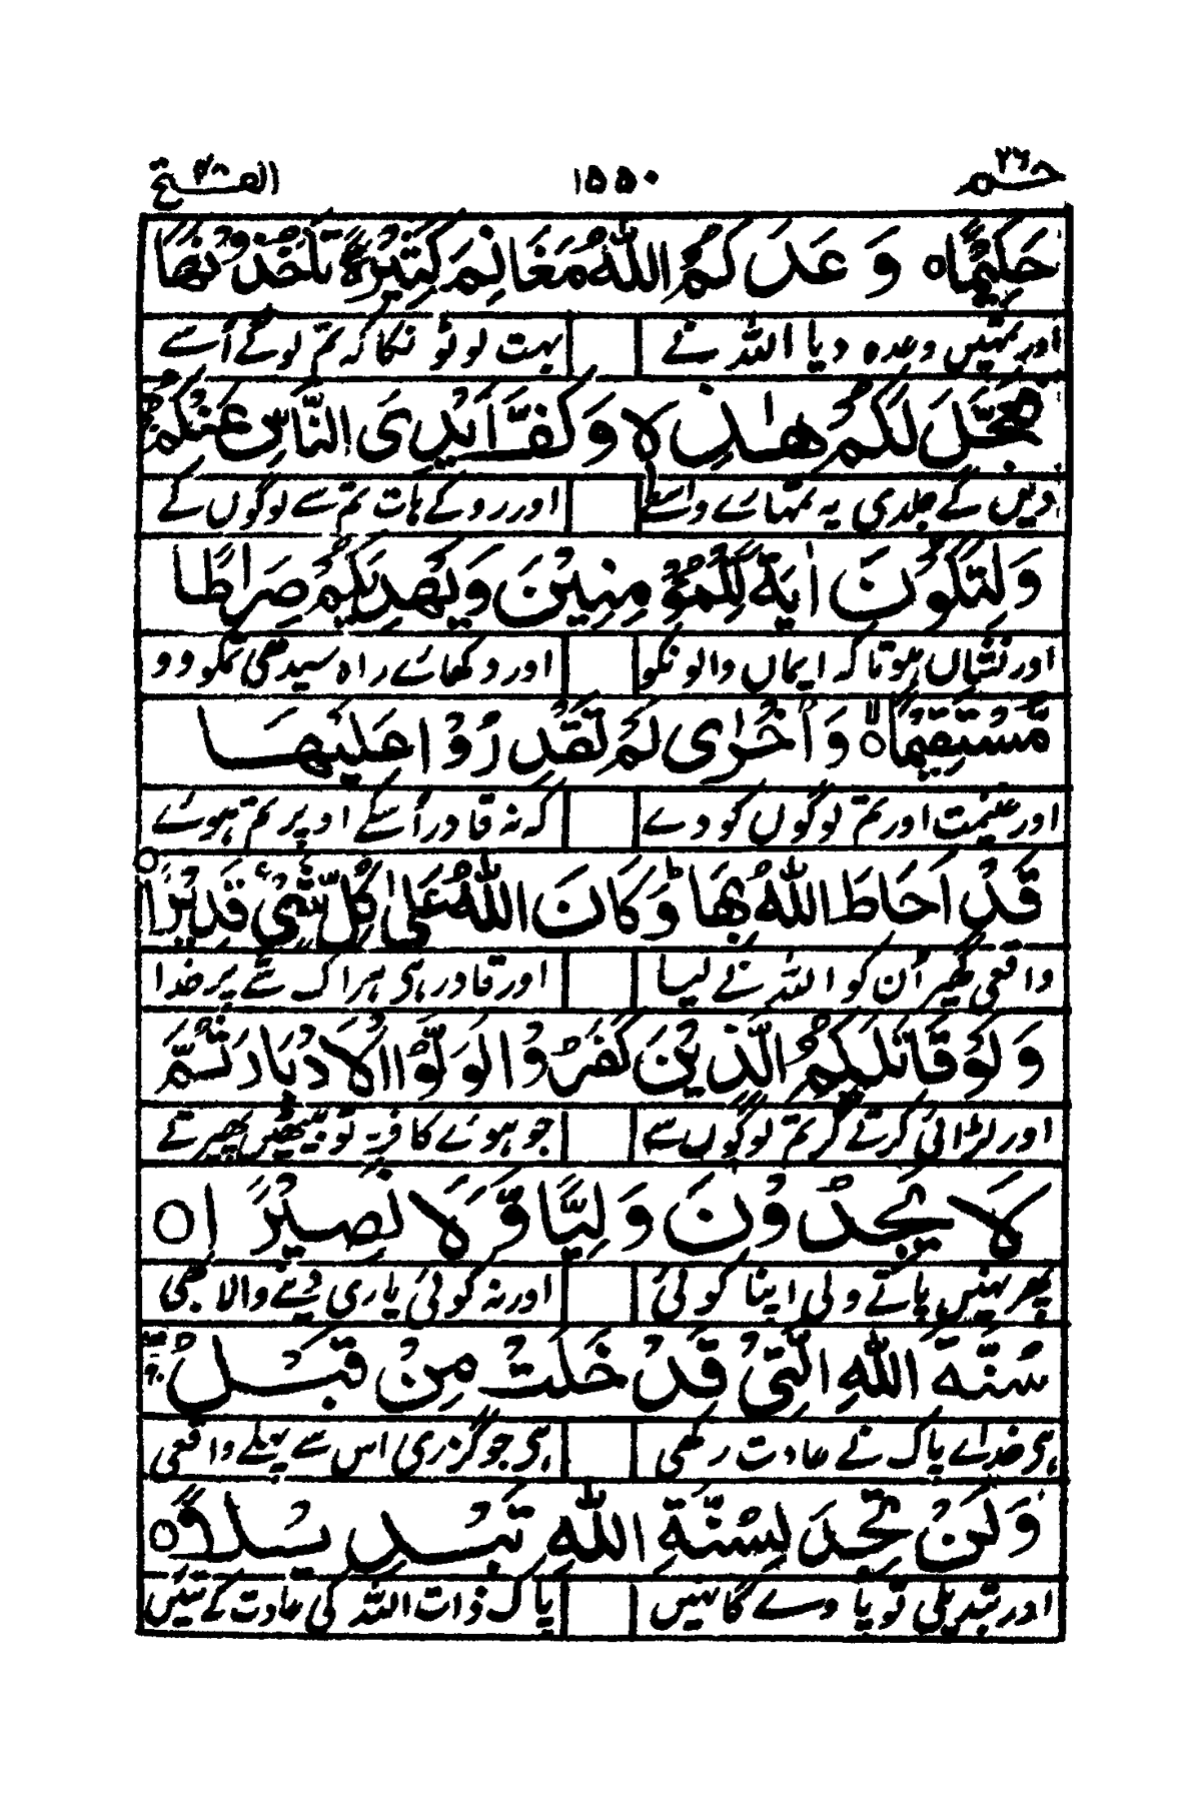 حٰم ۲۶ ۱۵۵۰ الفتح ۴۸
حَكِيْمًا ○ وَعَدَكُمُ اللّٰهُ مَغَانِمَ كَثِيْرَةً تَاْخُذُوْنَهَا
اور تمہیں وعدہ دیا اللہ نے بہت لوٹو نکا کہ تم لوگے اُسے
فَعَجَّلَ لَكُمْ هٰذِهٖ وَكَفَّ اَيْدِىَ النَّاسِ عَنْكُمْ
دیں گے جلدی یہ تمہارے واسطے اور روکے ہات تم سے لوگوں کے
وَلِتَكُوْنَ اٰيَةً لِّلْمُؤْمِنِيْنَ وَيَهْدِيَكُمْ صِرَاطًا
اور نشاں ہو تا کہ ایماں والو نکو اور دکھائے راہ سیدھی تمکو وو
مُّسْتَقِيْمًا ○ وَاُخْرٰى لَمْ تَقْدِرُوْا عَلَيْهَا
اور غنیمت اور تم لوگوں کو دے کہ نہ قادر اُسکے اوپر تم ہوے
قَدْ اَحَاطَ اللّٰهُ بِهَا وَكَانَ اللّٰهُ عَلٰى كُلِّ شَىْءٍ قَدِيْرًا ○
واقعی گھیر اُن کو اللہ نے لیا اور قادر ہی ہر اک شے پر خدا
وَلَوْ قَاتَلَكُمُ الَّذِيْنَ كَفَرُوْا لَوَلَّوُا الْاَدْبَارَ ثُمَّ
اور لڑائی کرتے گر تم لوگوں سے جو ہوے کافر یہ تو پیٹھیں پھیرتے
لَا يَجِدُوْنَ وَلِيًّا وَّلَا نَصِيْرًا ○
پھر نہیں پاتے ولی اپنا کوئی اور نہ کوئی یاری دینے والا بھی
سُنَّةَ اللّٰهِ الَّتِىْ قَدْ خَلَتْ مِنْ قَبْلُ
ہی خداے پاک نے عادت رکھی ہی جو گزری اس سے پہلے واقعی
وَلَنْ تَجِدَ لِسُنَّةِ اللّٰهِ تَبْدِيْلًا ○
اور تبدیلی تو پاوے گا نہیں پاک ذات اللہ کی عادت کے تئیں